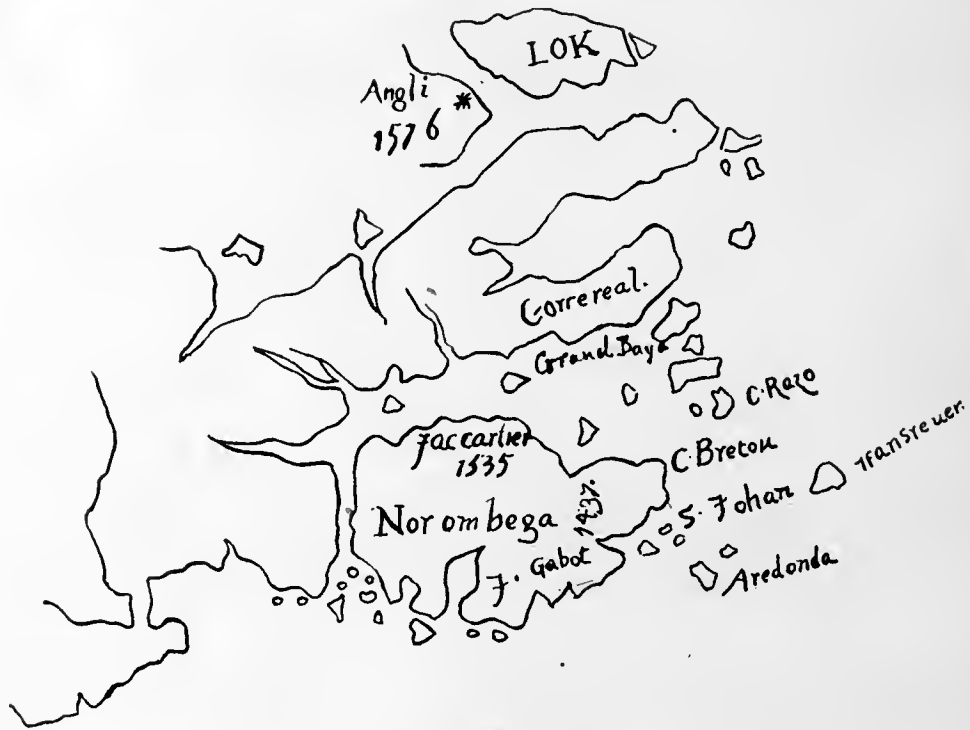 LOK
Angli
1576
Correreal.
Grand Baya
C. Razo
Jaccartier
1535
C. Breton
Norombega
1437.
S. Johan
J. Gabot
Aredonda